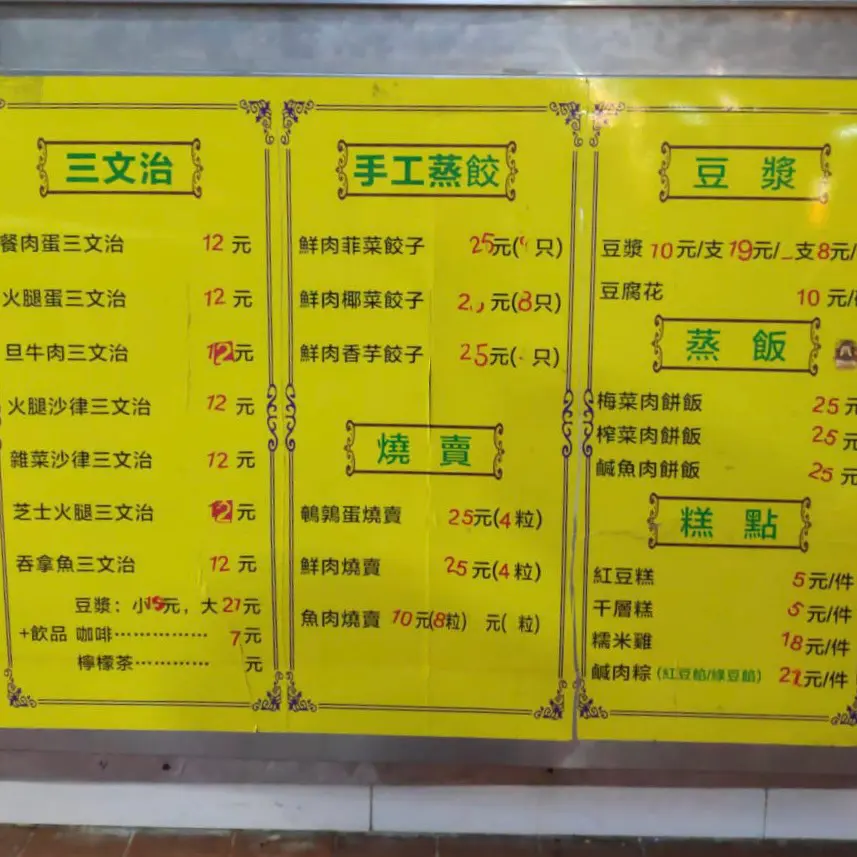 三文治
餐肉蛋三文治 12 元
火腿蛋三文治 12 元
旦牛肉三文治 12元
火腿沙律三文治 12 元
雜菜沙律三文治 12 元
芝士火腿三文治 12元
吞拿魚三文治 12 元
豆漿：小15元，大21元
+飲品 咖啡…………… 7元
檸檬茶………… 元
手工蒸餃
鮮肉菲菜餃子 25元( 只)
鮮肉椰菜餃子 元(8只)
鮮肉香芋餃子 25元( 只)
燒賣
鵪鶉蛋燒賣 25元(4粒)
鮮肉燒賣 25元(4粒)
魚肉燒賣 10元(8粒) 元( 粒)
豆漿
豆漿 10元/支 19元/ 支 8元/
豆腐花 10 元/
蒸飯
梅菜肉餅飯 25元
榨菜肉餅飯 25元
鹹魚肉餅飯 25元
糕點
紅豆糕 5元/件
千層糕 5元/件
糯米雞 18元/件
鹹肉粽（紅豆餡/綠豆餡） 元/件